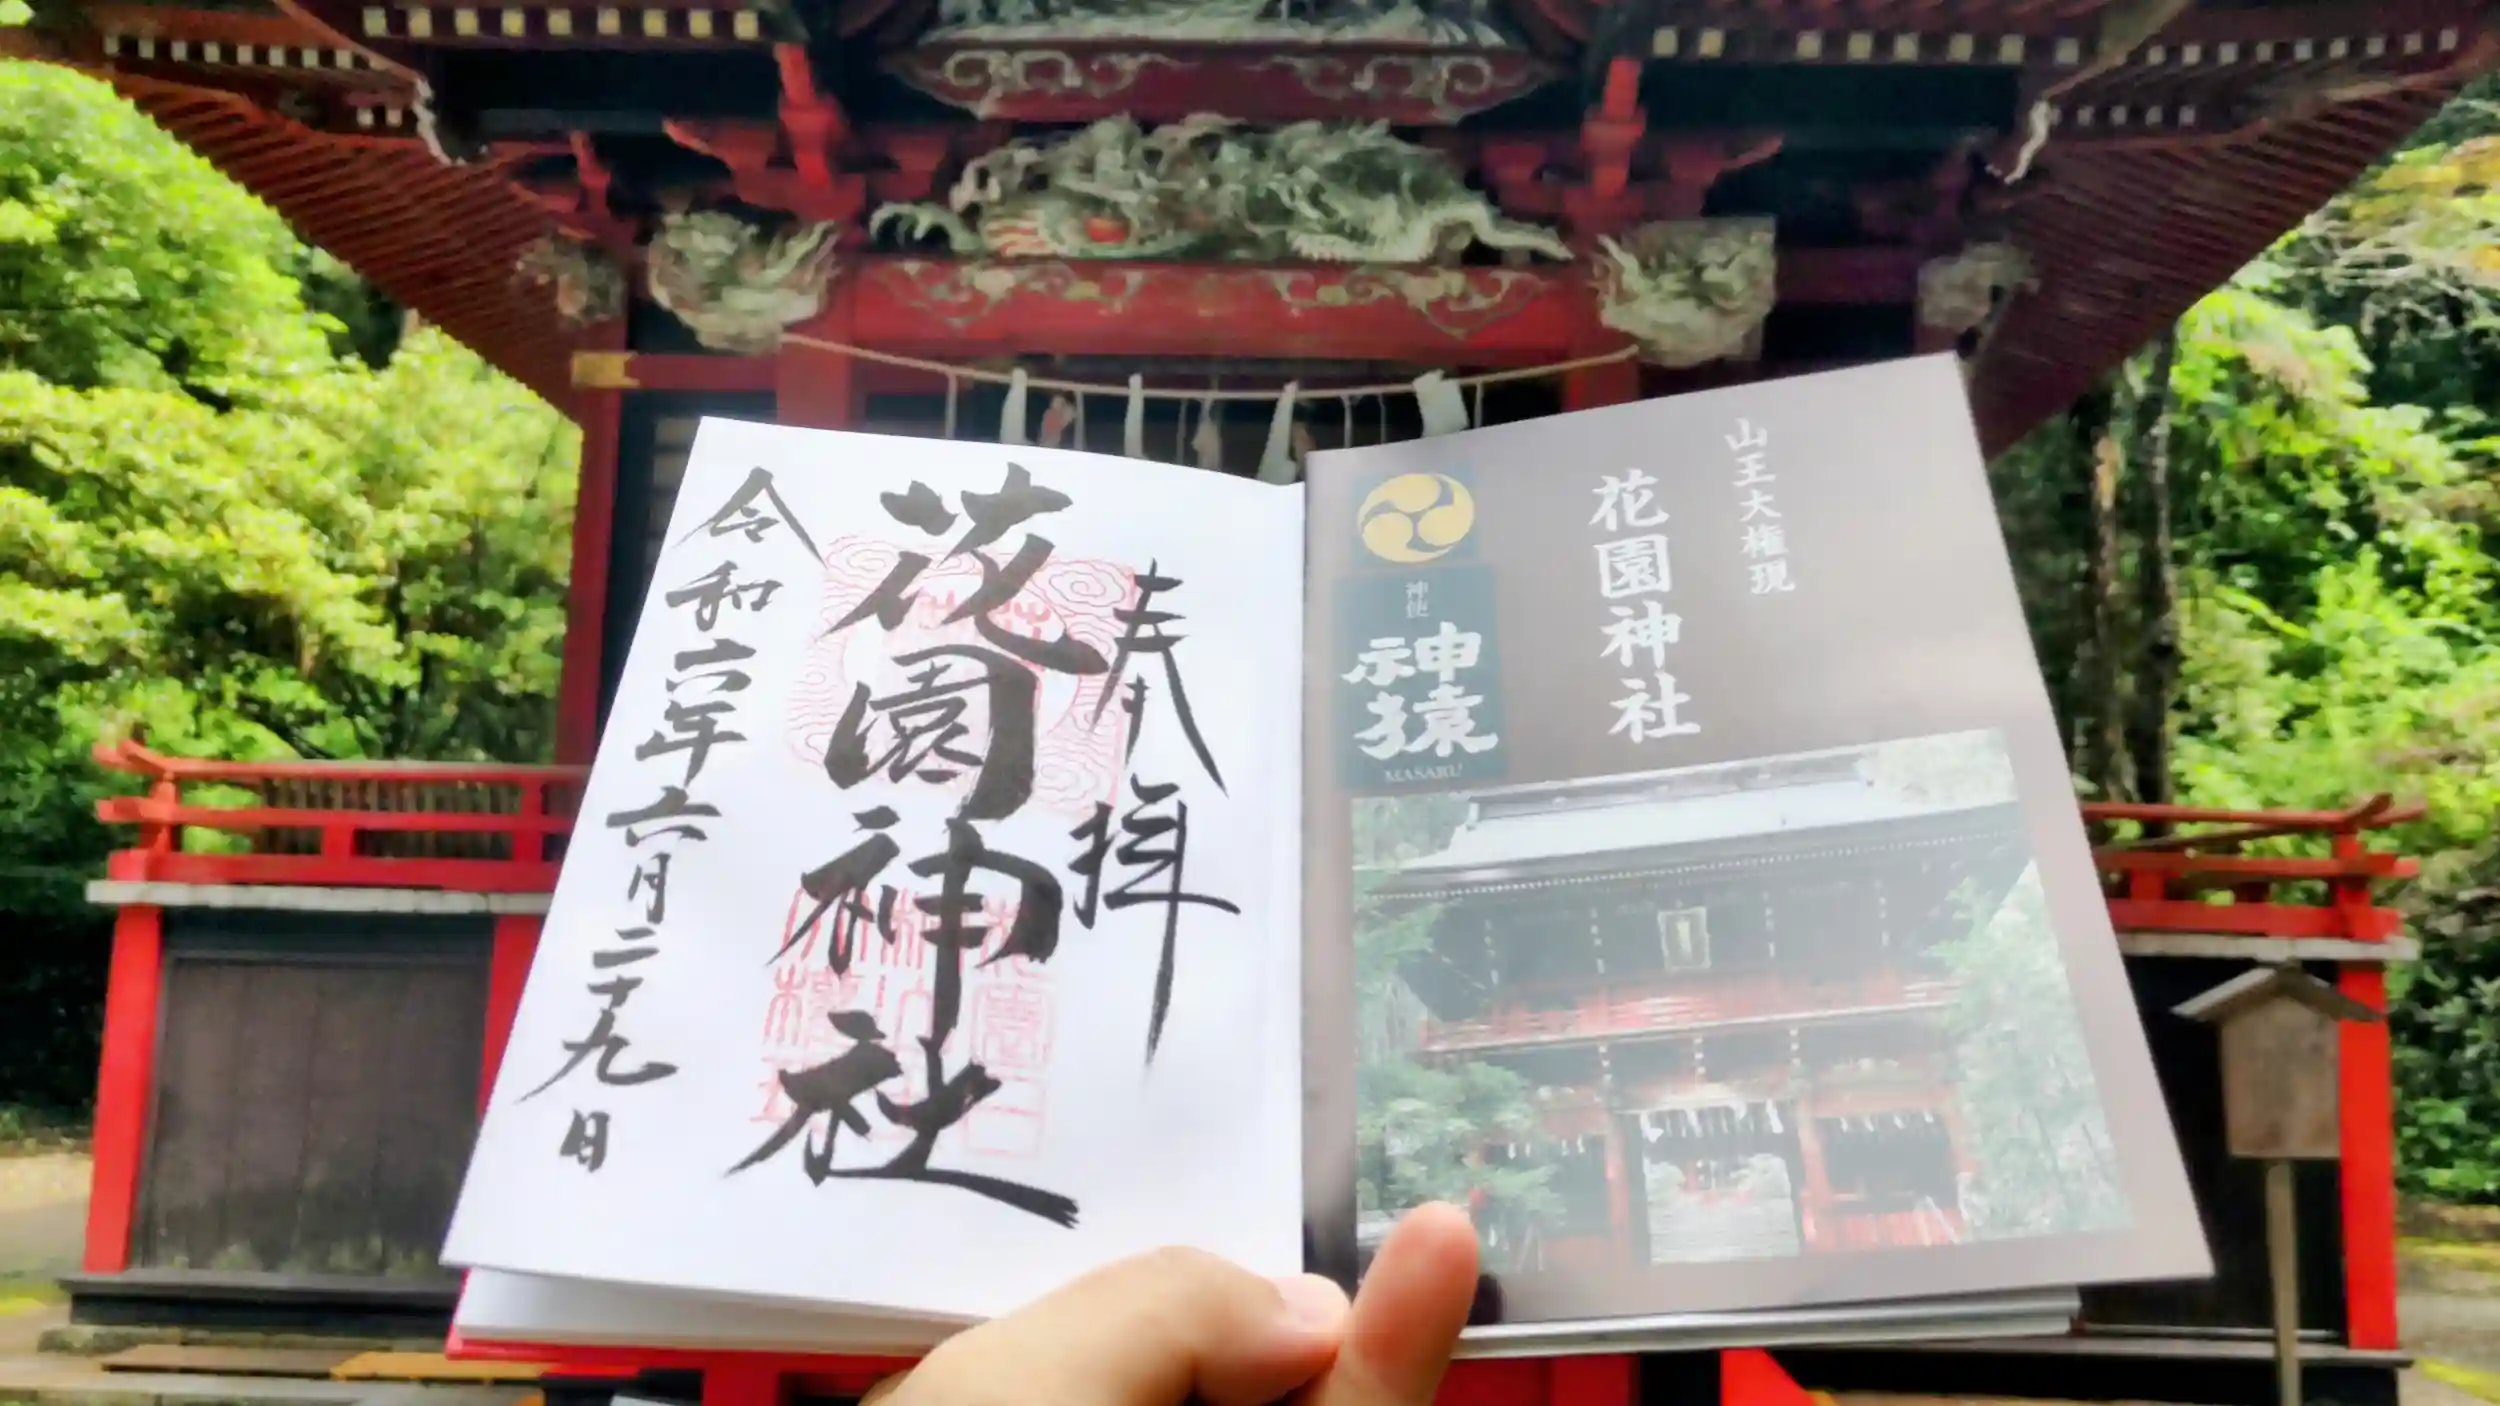 奉拝
花園神社
令和六年六月二十九日
山王大権現
花園神社
神使
神猿
MASARU